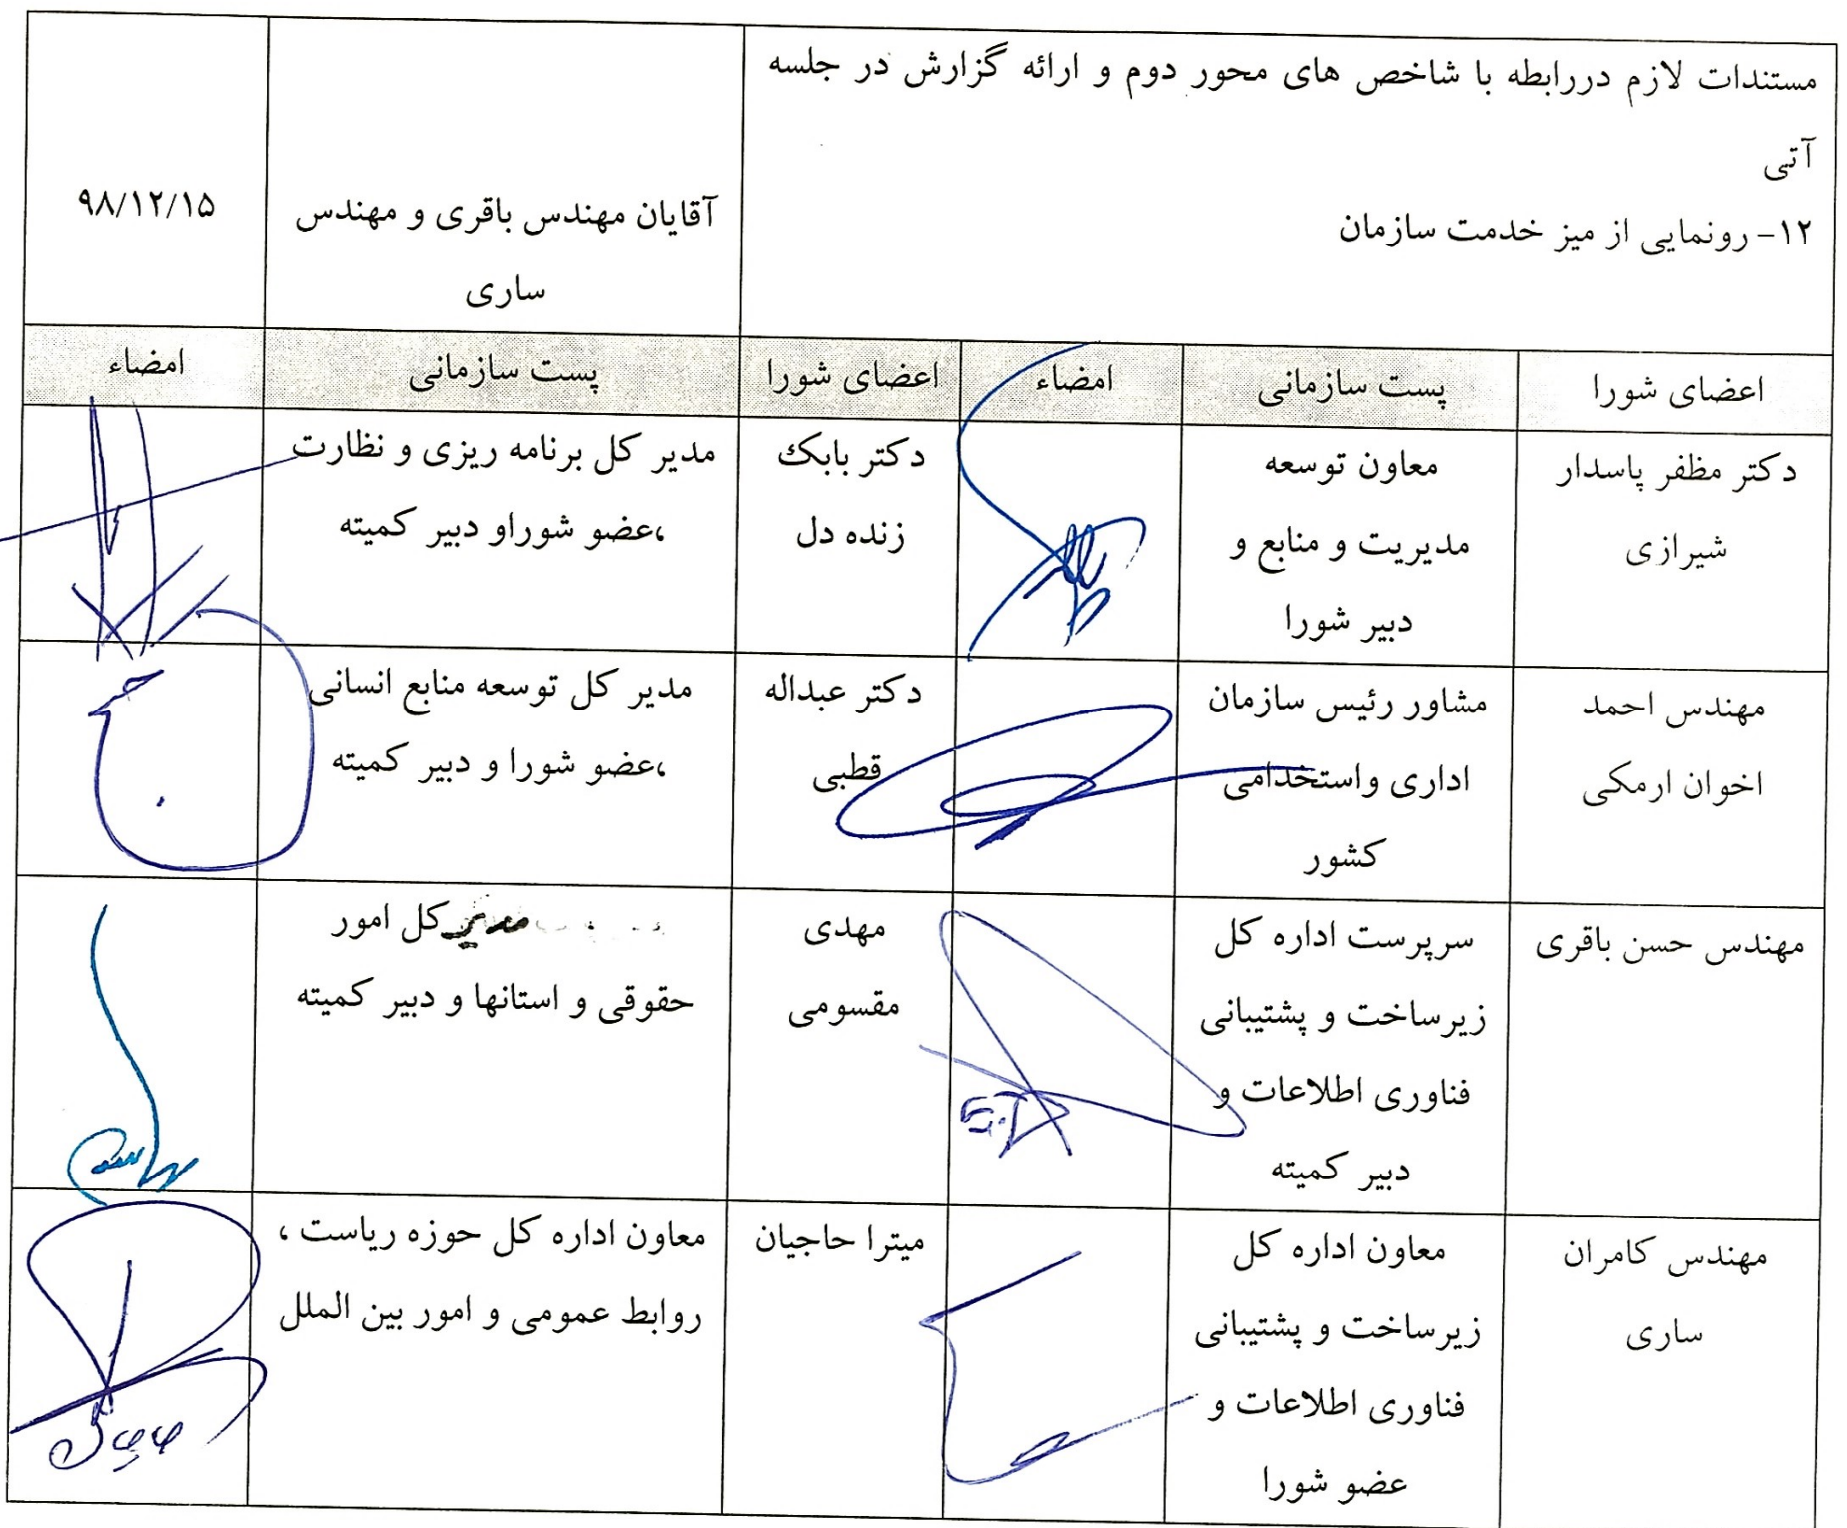 مستندات لازم دررابطه با شاخص های محور دوم و ارائه گزارش در جلسه
آتی
۱۲- رونمایی از میز خدمت سازمان
آقایان مهندس باقری و مهندس
ساری
۹۸/۱۲/۱۵
اعضای شورا
پست سازمانی
امضاء
اعضای شورا
پست سازمانی
امضاء
دکتر مظفر پاسدار
شیرازی
معاون توسعه
مدیریت و منابع و
دبیر شورا
دکتر بابک
زنده دل
مدیر کل برنامه ریزی و نظارت
،عضو شوراو دبیر کمیته
مهندس احمد
اخوان ارمکی
مشاور رئیس سازمان
اداری واستخدامی
کشور
دکتر عبداله
قطبی
مدیر کل توسعه منابع انسانی
،عضو شورا و دبیر کمیته
مهندس حسن باقری
سرپرست اداره کل
زیرساخت و پشتیبانی
فناوری اطلاعات و
دبیر کمیته
مهدی
مقسومی
مدیر کل امور
حقوقی و استانها و دبیر کمیته
مهندس کامران
ساری
معاون اداره کل
زیرساخت و پشتیبانی
فناوری اطلاعات و
عضو شورا
میترا حاجیان
معاون اداره کل حوزه ریاست ،
روابط عمومی و امور بین الملل